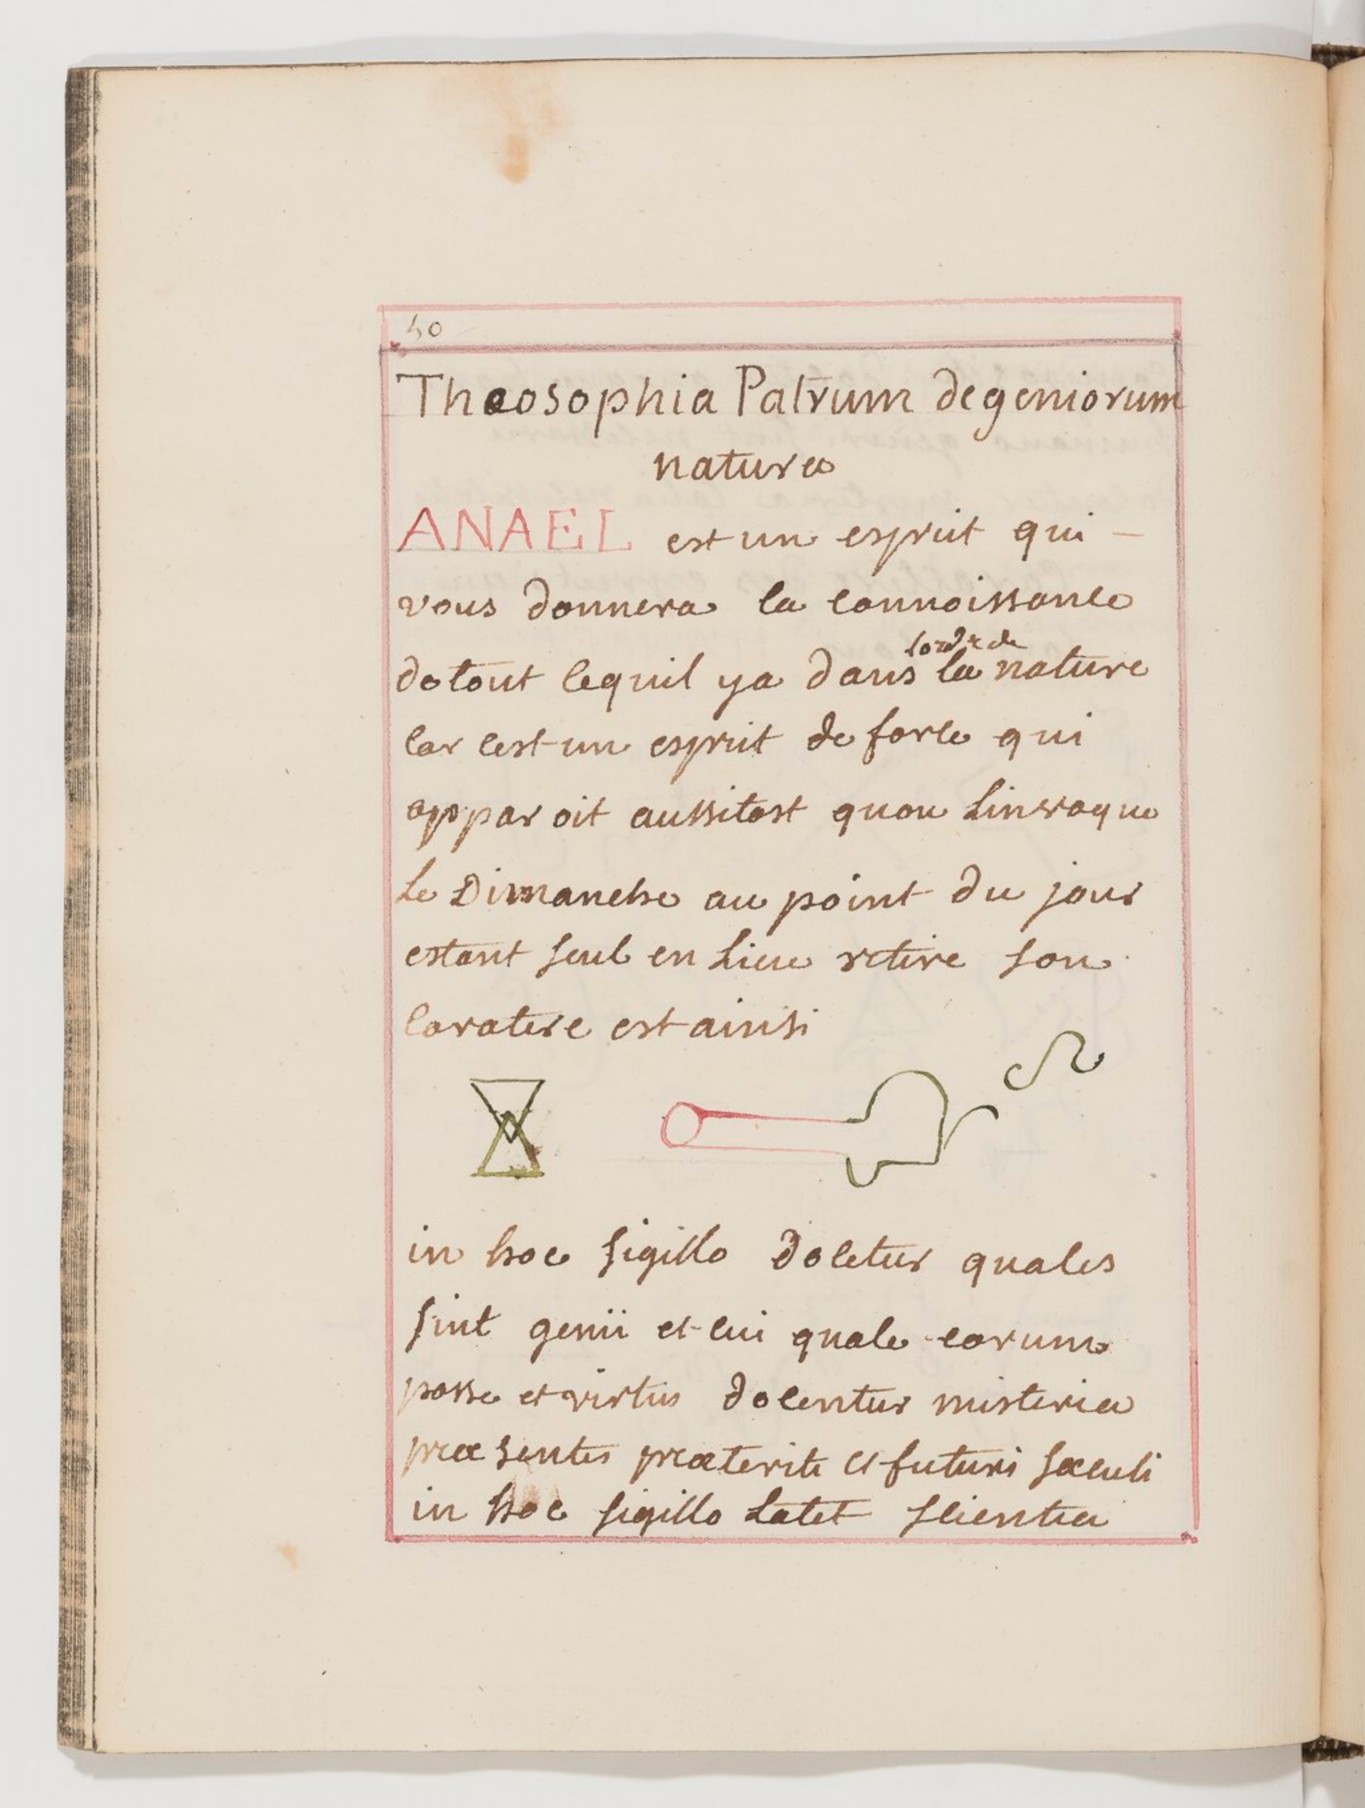 40
Theosophia Patrum de geniorum
natura
ANAEL est un esprit qui –
vous donnera la connoissance
de tout cequil ya dans la nature
lordre de
car cest un esprit de force qui
apparoit aussitost quon linvoque
le Dimanche au point du jour
estant seul en lieu retire son
caratere est ainsi
in hoc sigillo docetur quales
sint genii et cui quale earum
posse et virtus docentur misteria
præsentis præteriti et futuri sæculi
in hoc sigillo latet scientia